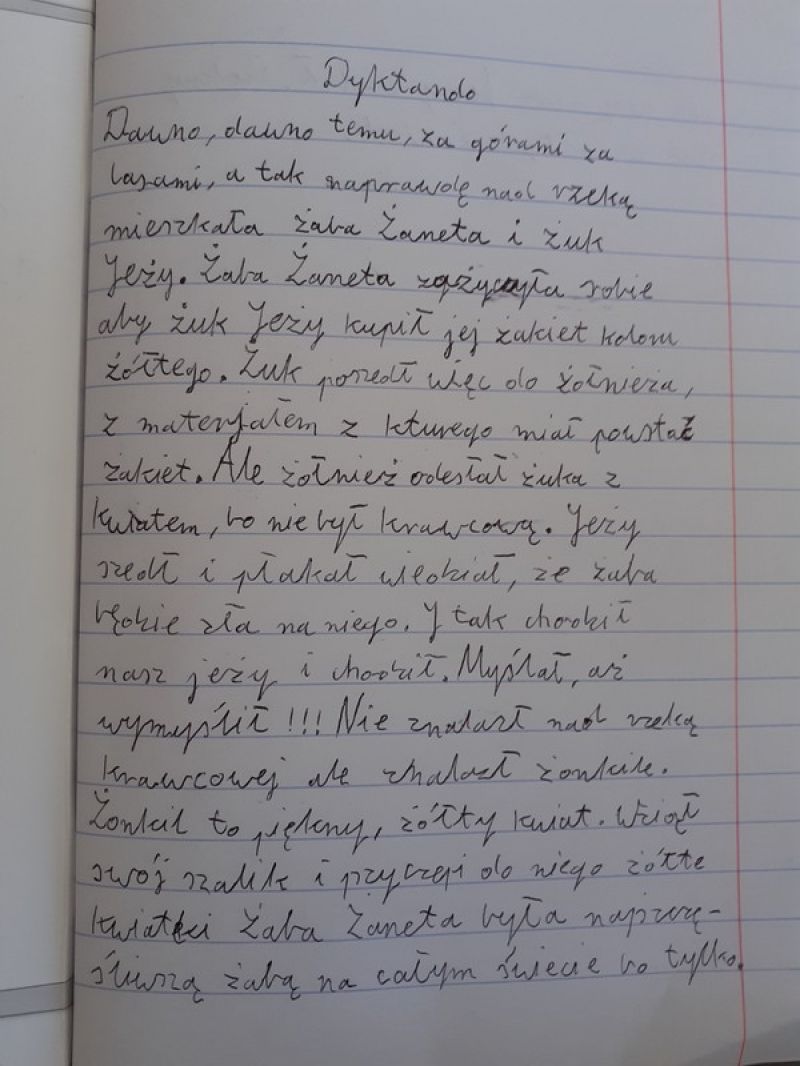 Dyktando
Dawno, dawno temu, za górami za
lasami, a tak naprawdę nad rzeką
mieszkała żaba Żaneta i żuk
Jeży. Żaba Żaneta zażyczyła sobie
aby żuk Jeży kupił jej żakiet koloru
żółtego. Żuk poszedł więc do żołnieża,
z materjałem z kturego miał powstać
żakiet. Ale żołnież odesłał żuka z
kwiatem, bo nie był krawcową. Jeży
szedł i płakał wiedział, że żaba
będzie zła na niego. I tak chodził
nasz jeży i chodził. Myślał, aż
wymyślił !!! Nie znalazł nad rzeką
krawcowej ale znalazł żonkile.
Żonkil to piękny, żółty kwiat. Wziął
swój szalik i przyczepi do niego żółte
kwiatki Żaba Żaneta była najszczę-
śliwszą żabą na całym świecie bo tylko.